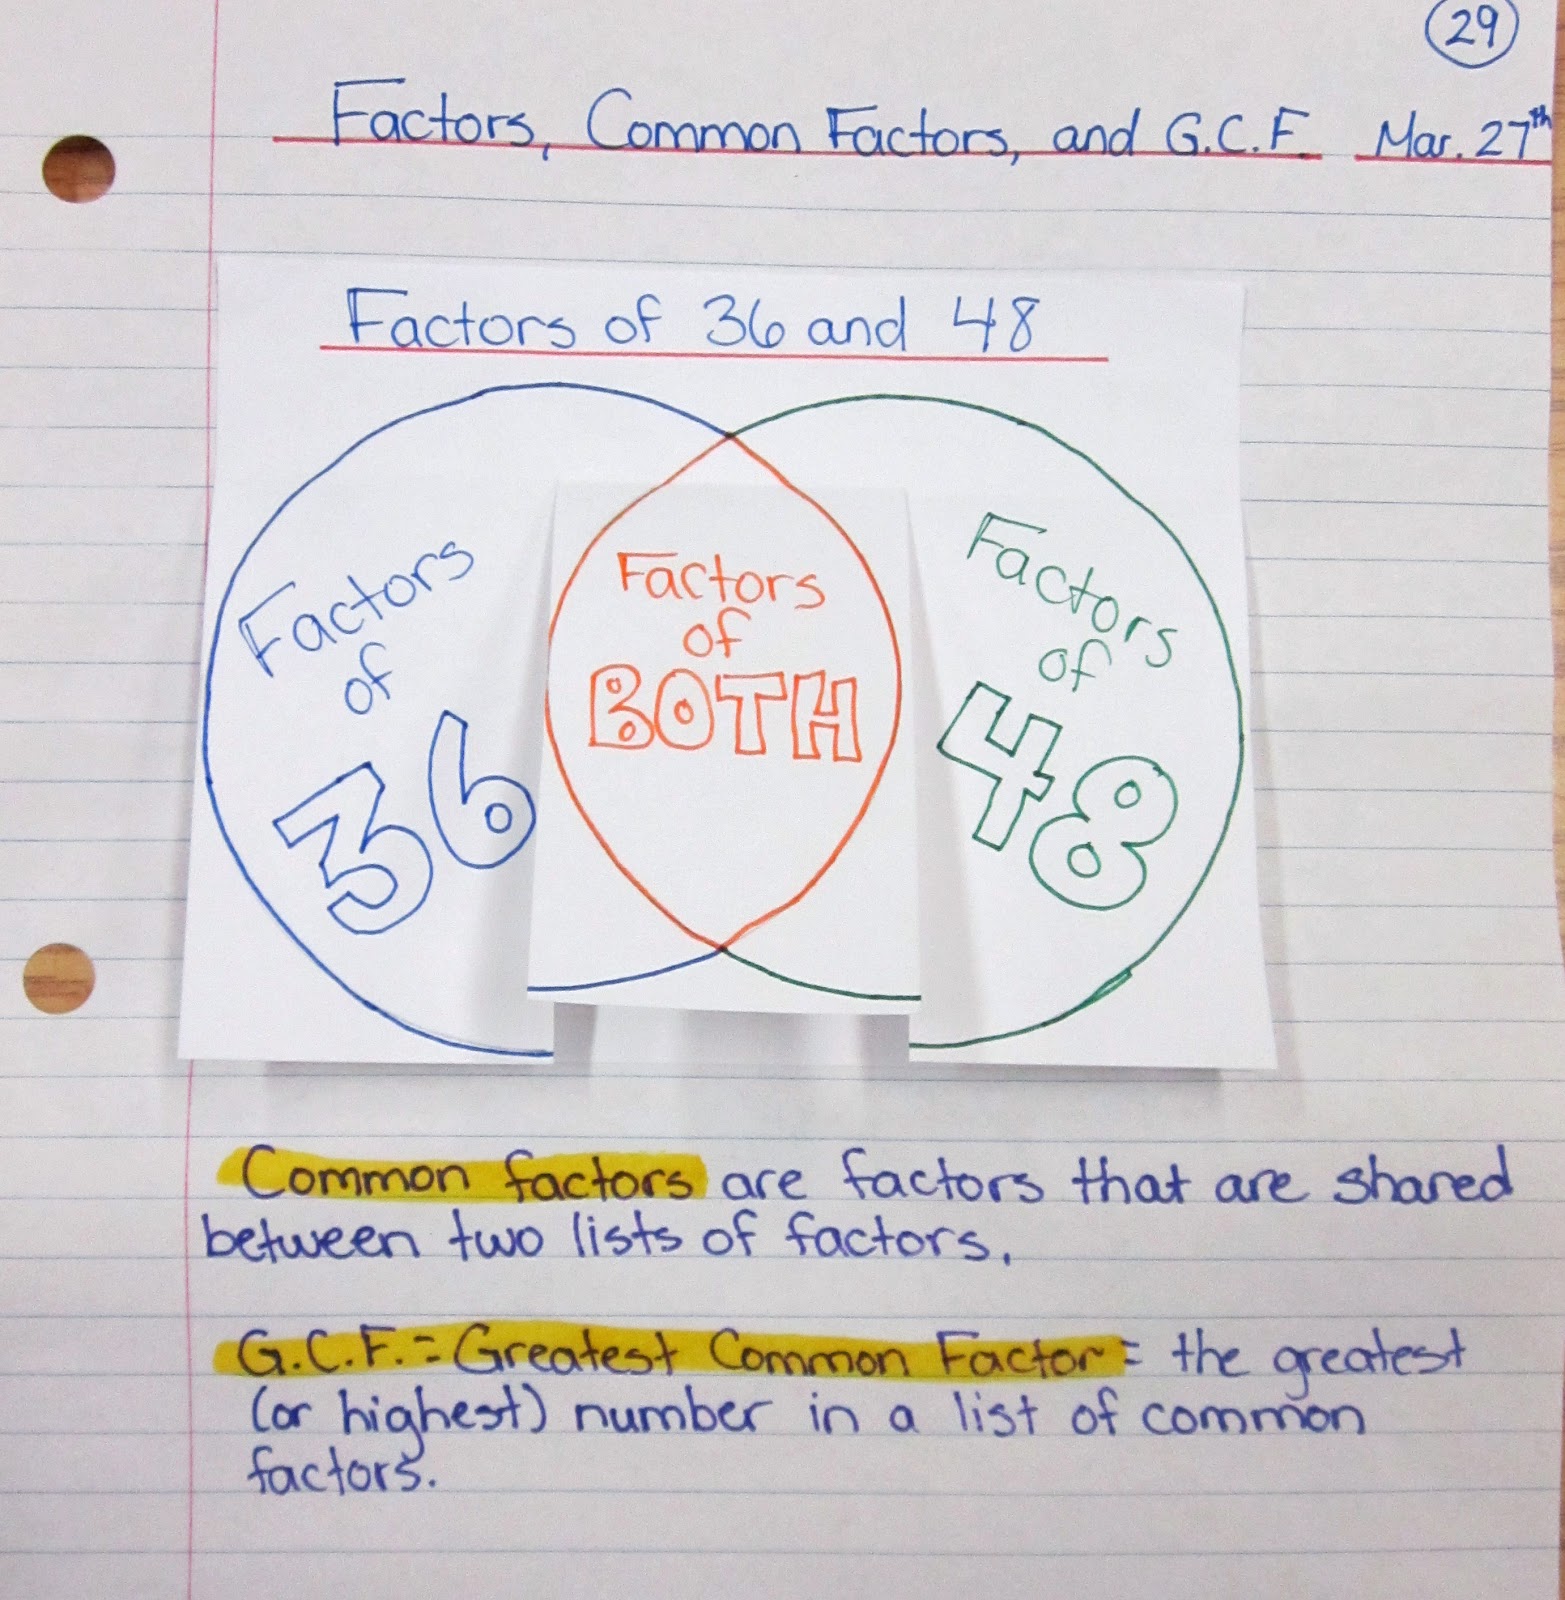 29
Factors, Common Factors, and G.C.F. Mar. 27th
Factors of 36 and 48
Factors
of
36
Factors
of
BOTH
Factors
of
48
Common factors are factors that are shared
between two lists of factors.
G.C.F. = Greatest Common Factor = the greatest
(or highest) number in a list of common
factors.